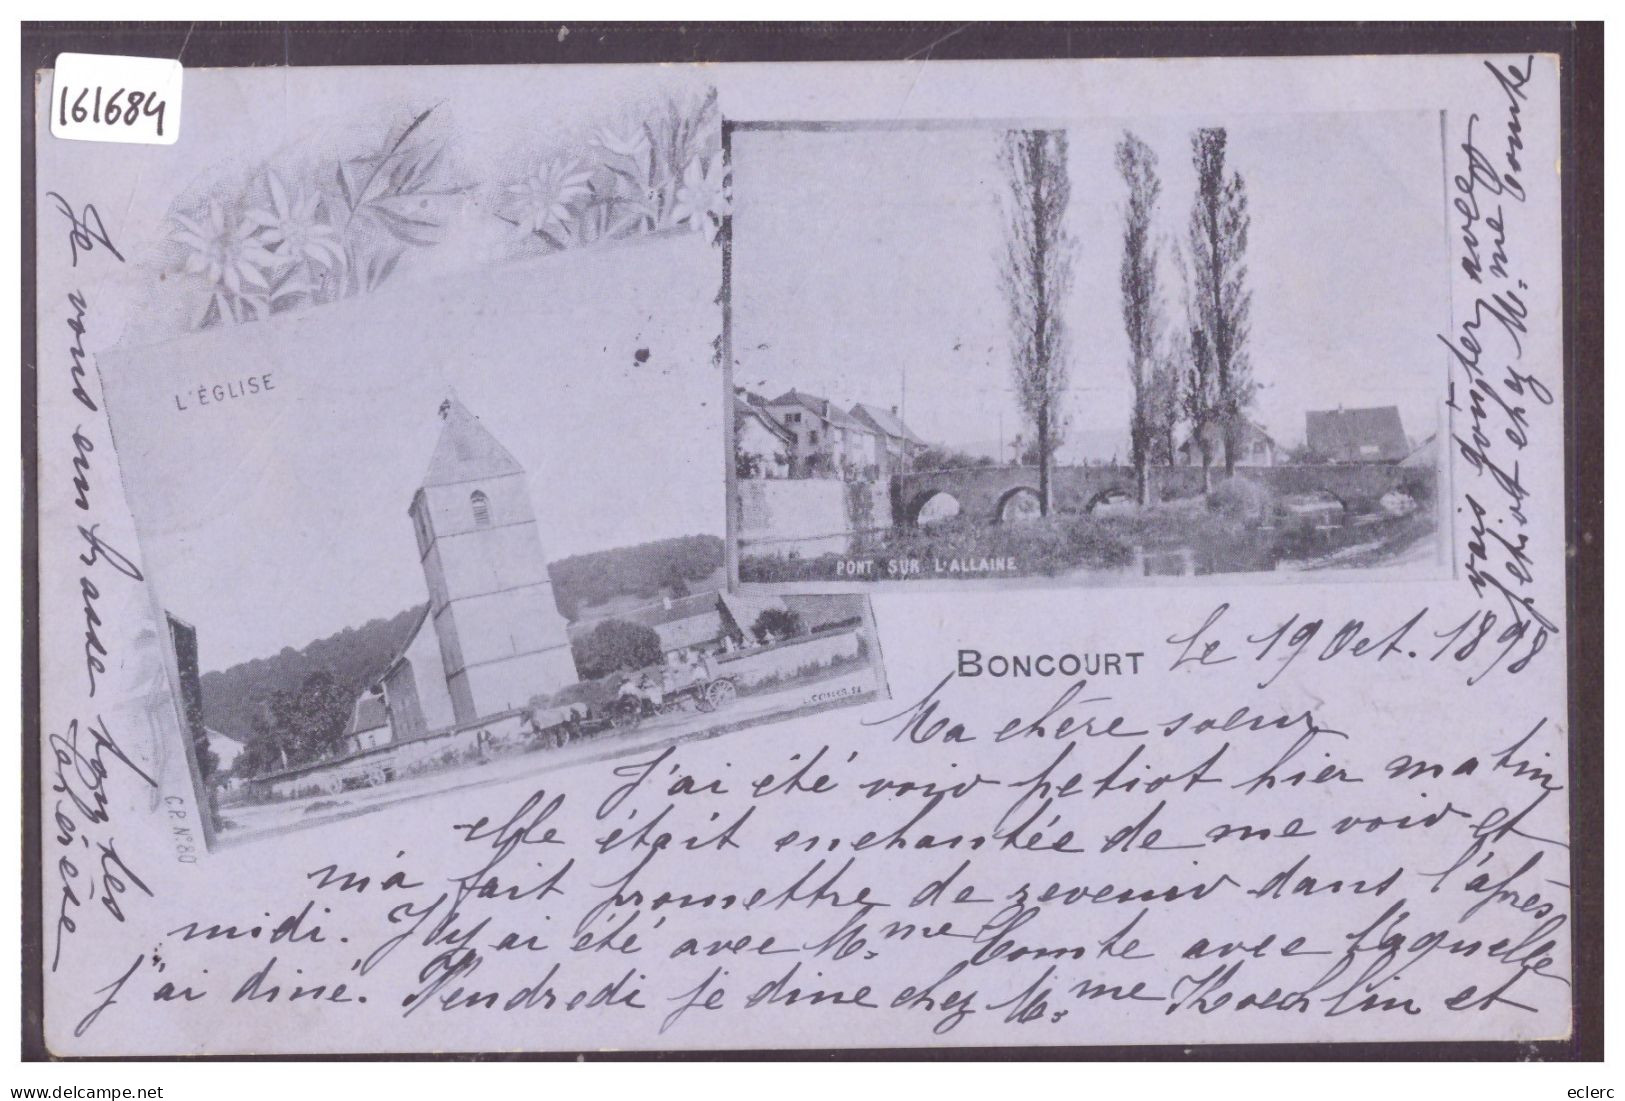 161684
L'ÉGLISE
PONT SUR L'ALLAINE
C.P. N° 80
BONCOURT
Le 19 Oct. 1898
Ma chère soeur
J'ai été voir petiot hier matin
elle était enchantée de me voir et
m'a fait promettre de revenir dans l'après
midi. J'y ai été avec M.me Comte avec laquelle
j'ai diné. Vendredi je dine chez M.me Koechlin et
vais goûter avec
petiot chez M.me Comte
Je vous embrasse tous
Thérèse
eclerc